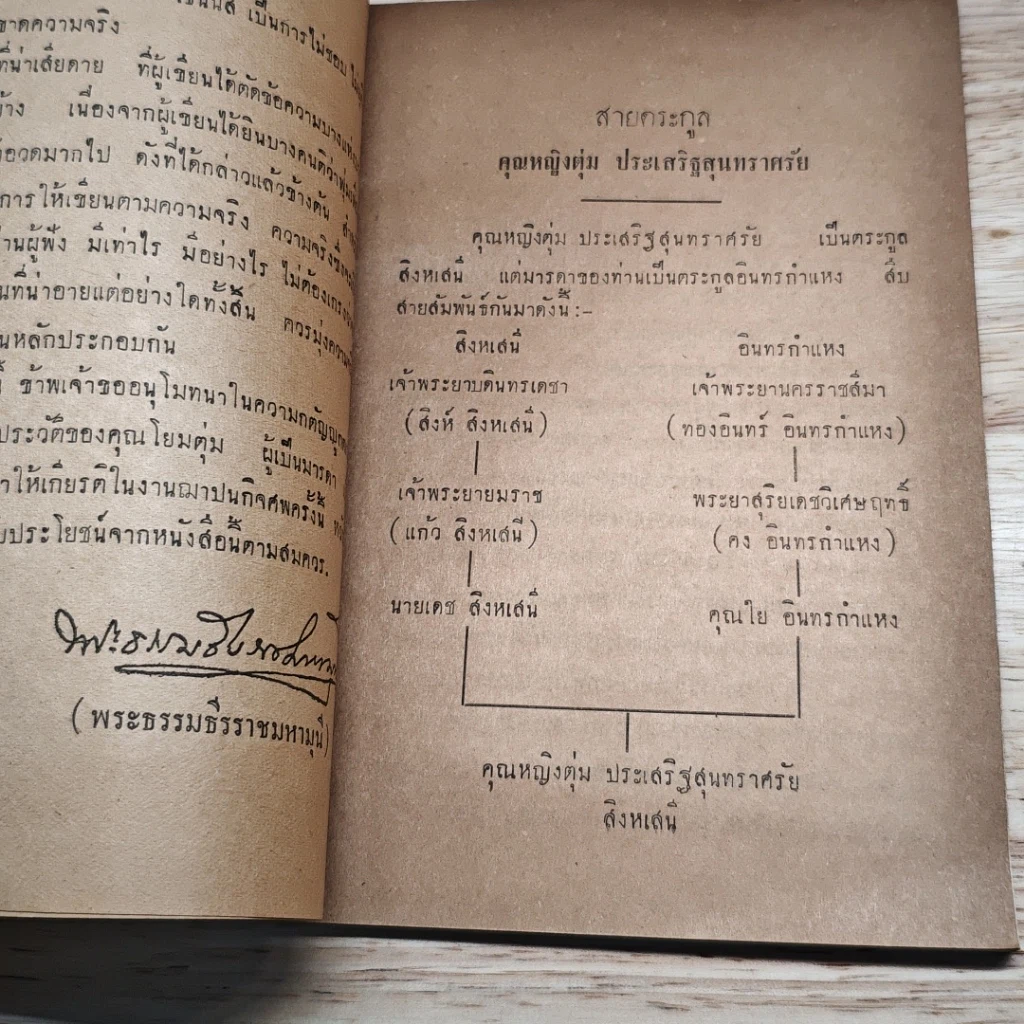 เป็นการไม่ชอบ
ขาดความจริง
ที่น่าเสียดาย ที่ผู้เขียนได้ตัดข้อความบางแห่ง
บ้าง เนื่องจากผู้เขียนได้ยินบางคนติว่า
อวดมากไป ดังที่ได้กล่าวแล้วข้างต้น
การให้เขียนตามความจริง ความจริงซึ่ง
ท่านผู้ฟัง มีเท่าไร มีอย่างไร ไม่ต้องเกรง
นที่น่าอายแต่อย่างใดทั้งสิ้น ควรมุ่งความ
นหลักประกอบกัน
ข้าพเจ้าขออนุโมทนาในความกตัญญู
ประวัติของคุณโยมตุ่ม ผู้เป็นมารดา
ให้เกียรติในงานฌาปนกิจศพครั้งนี้
ประโยชน์จากหนังสือนี้ตามสมควร.
พระธรรมธีรราชมหามุนี
(พระธรรมธีรราชมหามุนี)
สายตระกูล
คุณหญิงตุ่ม ประเสริฐสุนทราศรัย
คุณหญิงตุ่ม ประเสริฐสุนทราศรัย เป็นตระกูล
สิงหเสนี แต่มารดาของท่านเป็นตระกูลอินทรกำแหง สืบ
สายสัมพันธ์กันมาดังนี้ :-
สิงหเสนี อินทรกำแหง
เจ้าพระยาบดินทรเดชา เจ้าพระยานครราชสีมา
(สิงห์ สิงหเสนี) (ทองอินทร์ อินทรกำแหง)
เจ้าพระยายมราช พระยาสุริยเดชวิเศษฤทธิ์
(แก้ว สิงหเสนี) (คง อินทรกำแหง)
นายเดช สิงหเสนี คุณใย อินทรกำแหง
คุณหญิงตุ่ม ประเสริฐสุนทราศรัย
สิงหเสนี